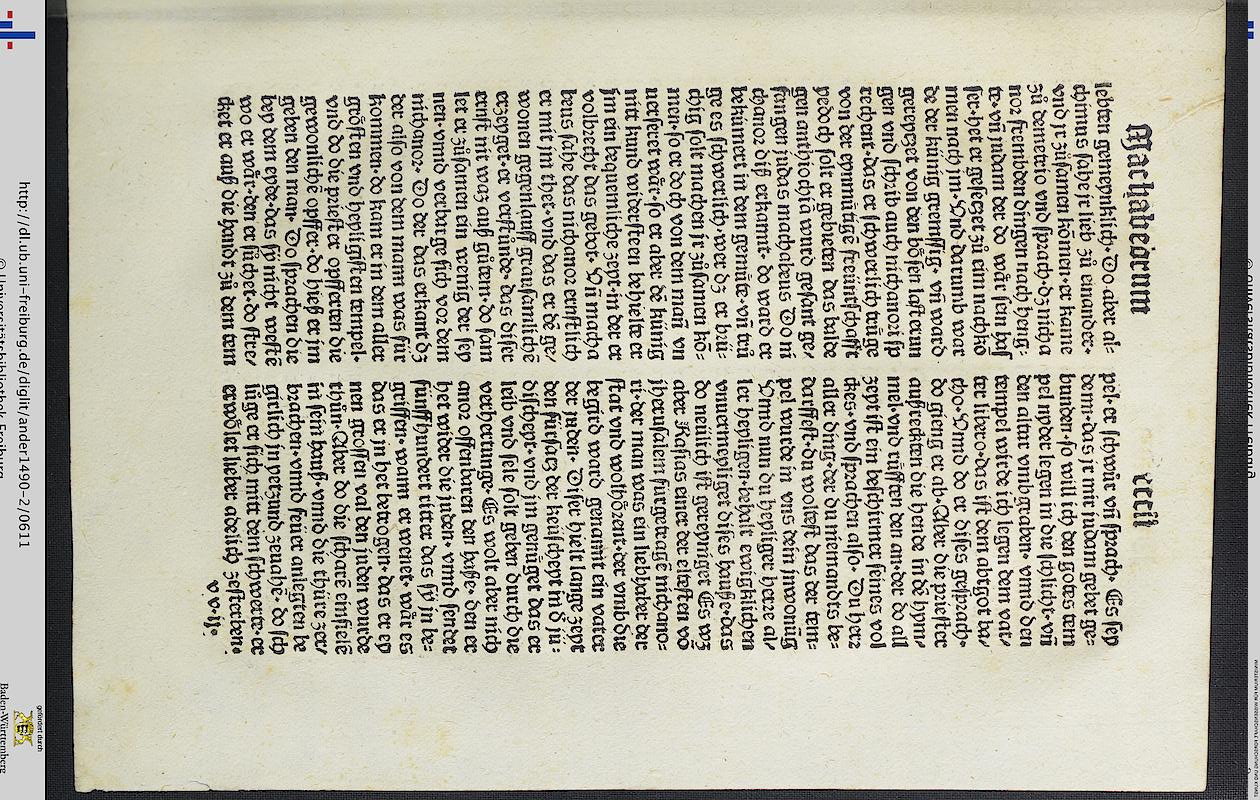 Machabeorum
xcii
lebten gemeynklich. Do aber al⸗
chimus sahe jr lieb zů einander.
vnd jr zůsamen kömen. er kame
zů demetrio vnd sprach. dz nicha
nor frembden dingen nach heng⸗
te. vñ judam der do wår sein has
ser. het er gesetzet zů eim nachkō
men nach jm. Vnd darumb war
de der künig gremssig. vñ ward
gereytzet von den bösen lasterun
gen vnd schrib auch nichanori sp
rechent. das er schwerlich trüge
von der eynmůtigē freüntschafft
yedoch solt er gebieten das balde
gen anthochiā wurd gesant ge/
fangen judas machabeus Do ni
chanor diß erkannt. do ward er
bekümert in dem gemůte. vñ trů
ge es schwerlich. wer dz er brü⸗
chig solt machen jr zůsamen kö⸗
men. so er doch von dem mañ vn
uerseret wår. so er aber dē künig
nitt kund widersteen behielte er
jm ein bequemliche zeyt. in der er
volbrecht das gebot. Vñ macha
beus sahe das nichanor ernstlich
er mit jm thet. vnd das er dē ge/
wonen gegenlauff grausamlichē
erzeyget. er verstůnde. das diser
ernst nit waz auß gůtem. do sam
let er zůsamen ein wenig der sey
nen. vnnd verbarge sich vor dem
nichanor. Do der das erkant dz
der also von dem mann was für
kommen. do kam er in dem aller
grösten vnd heyligisten tempel.
vnd do die priester opfferten die
gewonlichē opffer. do hieß er jm
geben den man. Do sprachen die
bey dem eyde. das sy nicht westē
wo er wår. den er sůchet. do stre/
cket er auß die handt zů dem tem
pel. er schwůr vñ sprach. Es sey
dann. das jr mir judam gebet ge⸗
bunden. so will ich den gotes tem
pel nyder legen in die schlicht. vñ
den altar vmbgraben. vnnd den
tempel wirde ich legen dem vat/
ter libero. das ist dem abtgot ba/
cho. Vnnd do er dises gesprach.
do gieng er ab. Aber die priester
außreckten die hende in dē hym/
mel. vnd růfften den an. der do all
zeyt ist ein beschirmer seines vol
ckes. vnd sprachen also. Du herz
aller ding. der du niemandts be⸗
darffest. du woltest das der tem⸗
pel wurde in vns dein jnwonūg
Vnnd nun du heyliger herre al/
ler heyligen. behalt ewigklichen
vnuermeyliget dises hauße. das
do neülich ist gereyniget Es wz
aber Rasias einer der eltesten vō
jherusalem fürgetragē nichano⸗
ri. der man was ein liebhaber der
stat vnd wolhôrent. der vmb die
begird ward genannt ein vater
der juden. Diser hielt lange zeyt
den fürsatz der keüscheyt in d̄ ju⸗
discheyt. vnd jm genüget das er
leib vnd sele solt geben durch die
verhertunge. Es wolt aber nich
anor offenbaren den haße. den er
het wider die juden. vnnd sendet
fünffhundert ritter das sy in be⸗
griffen. wann er wenet. wår es
das er jn het betrogen. das er ey
nen grossen val den juden wurde
thůn. Aber do die scharē einfielē
in sein hauß. vnnd die thüre zer/
brachen. vnnd feüer anlegten be
girlich jn yetzund zenachē. do sch
lůge er sich mitt dem schwerte. er
erwôlet lieber adelich zesterben.
v. v. ij.
http://dl.ub.uni-freiburg.de/diglit/ander1490-2/0611
© Universitätsbibliothek Freiburg
gefördert durch
Baden-Württemberg